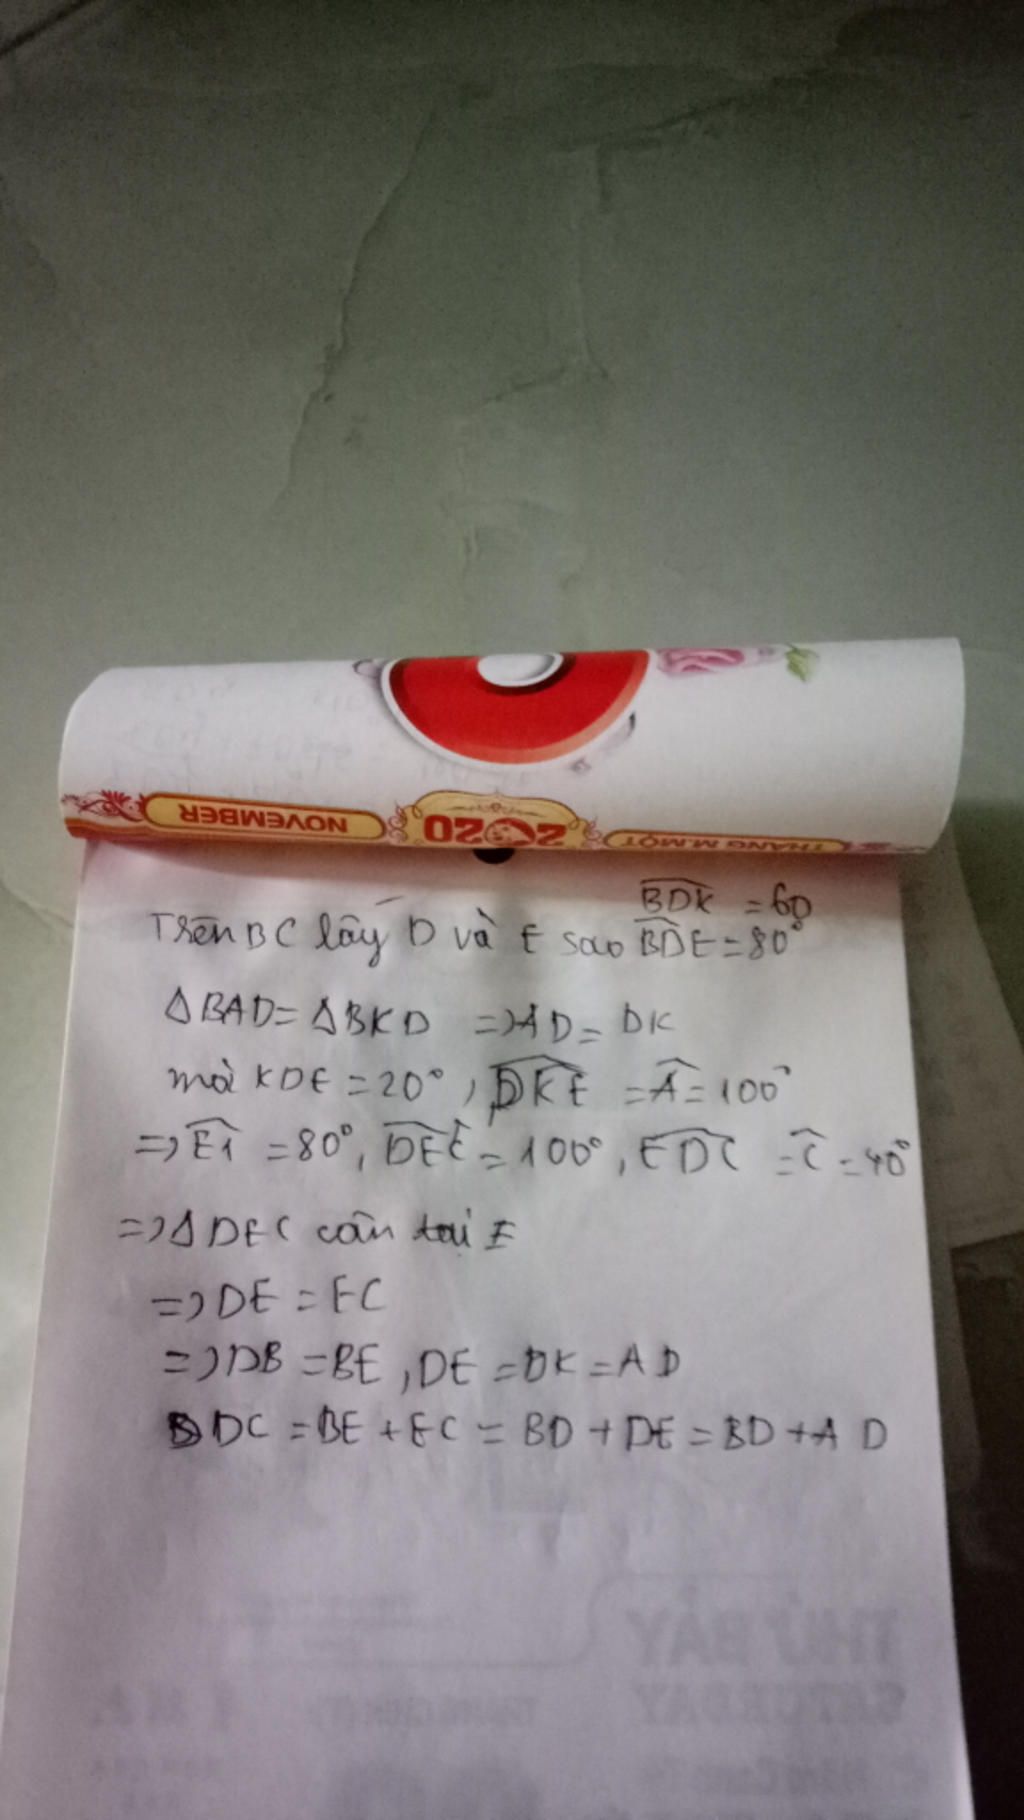 NOVEMBER
2020
THÁNG M.MỘT
BDK = 60
Trên BC lấy D và E sao BDE = 80°
ΔBAD = ΔBKD => AD = DK
mà KDE = 20°, DKE = A = 100°
=> E1 = 80°, DEC = 100°, EDC = C = 40°
=> ΔDEC cân tại E
=> DE = EC
=> DB = BE, DE = DK = AD
DC = BE + EC = BD + DE = BD + AD
THỨ BẢY
SATURDAY